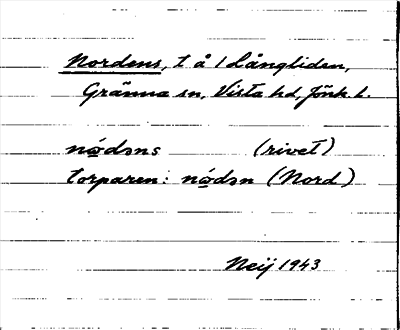 Nordens, t å 1 Långliden,
Gränna sn, Vista hd, Jönk. l.
nodəns (rivet)
torparen: nodən (Nord)
Neij 1943